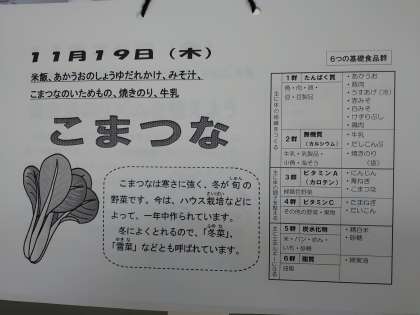 11月19日（木）
米飯、あかうおのしょうゆだれかけ、みそ汁、
こまつなのいためもの、焼きのり、牛乳
こまつな
こまつなは寒さに強く、冬が旬の
野菜です。今は、ハウス栽培などに
よって、一年中作られています。
冬によくとれるので、「冬菜」、
「雪菜」などとも呼ばれています。
6つの基礎食品群
1群 たんぱく質
魚・肉・卵・
豆・豆製品
・あかうお
・豚肉
・うすあげ（冷）
・赤みそ
・白みそ
・けずりぶし
・鶏肉
2群 無機質
（カルシウム）
牛乳・乳製品・
小魚・海そう
・牛乳
・だしこんぶ
・焼きのり
3群 ビタミンA
（カロテン）
緑黄色野菜
・にんじん
・青ねぎ
・こまつな
4群 ビタミンC
その他の野菜・果物
・たまねぎ
・だいこん
5群 炭水化物
米・パン・めん・
いも・砂糖
・精白米
・砂糖
6群 脂質
油脂
・綿実油